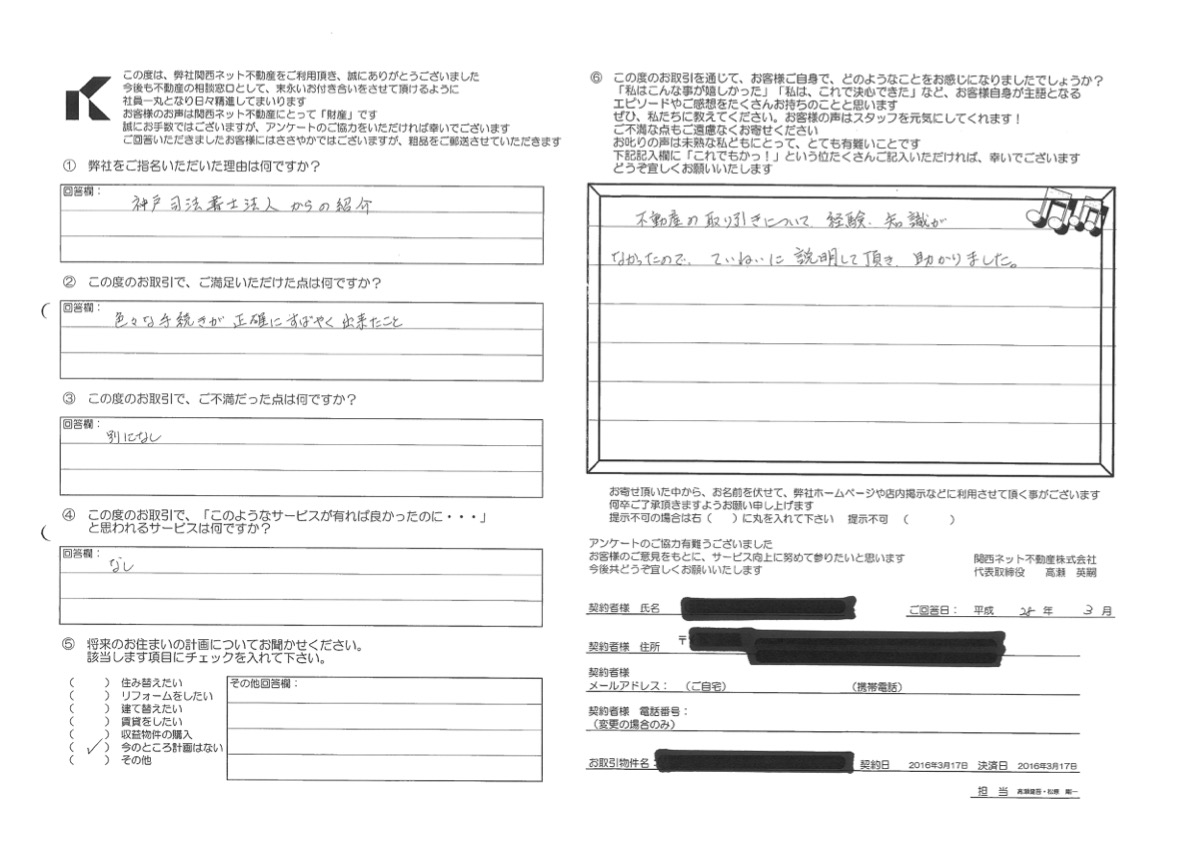 この度は、弊社関西ネット不動産をご利用頂き、誠にありがとうございました
今後も不動産の相談窓口として、末永いお付き合いをさせて頂けるように
社員一丸となり日々精進してまいります
お客様のお声は関西ネット不動産にとって「財産」です
誠にお手数ではございますが、アンケートのご協力をいただければ幸いでございます
ご回答いただきましたお客様にはささやかではございますが、粗品をご郵送させていただきます
① 弊社をご指名いただいた理由は何ですか？
回答欄：
神戸司法書士法人からの紹介
② この度のお取引で、ご満足いただけた点は何ですか？
回答欄：
色々な手続きが正確にすばやく出来たこと
③ この度のお取引で、ご不満だった点は何ですか？
回答欄：
別になし
④ この度のお取引で、「このようなサービスが有れば良かったのに・・・」
と思われるサービスは何ですか？
回答欄：
なし
⑤ 将来のお住まいの計画についてお聞かせください。
該当します項目にチェックを入れて下さい。
（　　）住み替えたい
（　　）リフォームをしたい
（　　）建て替えたい
（　　）賃貸をしたい
（　　）収益物件の購入
（ ✓ ）今のところ計画はない
（　　）その他
その他回答欄：
⑥ この度のお取引を通じて、お客様ご自身で、どのようなことをお感じになりましたでしょうか？
「私はこんな事が嬉しかった」「私は、これで決心できた」など、お客様自身が主語となる
エピソードやご感想をたくさんお持ちのことと思います
ぜひ、私たちに教えてください。お客様の声はスタッフを元気にしてくれます！
ご不満な点もご遠慮なくお寄せください
お叱りの声は未熟な私どもにとって、とても有難いことです
下記記入欄に「これでもかっ！」という位たくさんご記入いただければ、幸いでございます
どうぞ宜しくお願いいたします
不動産の取り引きについて、経験、知識が
なかったので、ていねいに説明して頂き、助かりました。
お寄せ頂いた中から、お名前を伏せて、弊社ホームページや店内掲示などに利用させて頂く事がございます
何卒ご了承頂きますようお願い申し上げます
提示不可の場合は右（　　）に丸を入れて下さい　提示不可　（　　　）
アンケートのご協力有難うございました
お客様のご意見をもとに、サービス向上に努めて参りたいと思います
今後共どうぞ宜しくお願いいたします
関西ネット不動産株式会社
代表取締役　高瀬　英嗣
契約者様　氏名
ご回答日：　平成　28　年　3　月
契約者様　住所　〒
契約者様
メールアドレス：　（ご自宅）　（携帯電話）
契約者様　電話番号：
（変更の場合のみ）
お取引物件名：　契約日　2016年3月17日　決済日　2016年3月17日
担　当